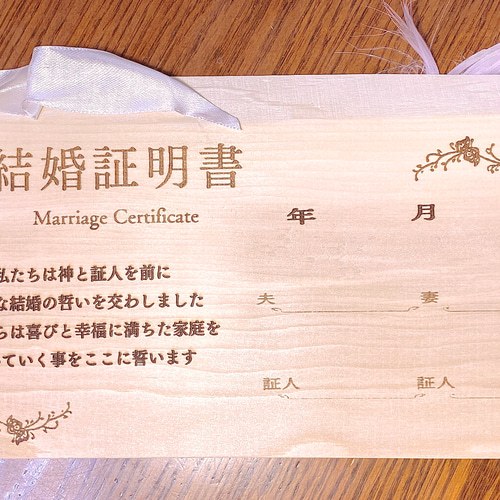 結婚証明書
Marriage Certificate
私たちは神と証人を前に
な結婚の誓いを交わしました
らは喜びと幸福に満ちた家庭を
ていく事をここに誓います
年 月
夫 妻
証人 証人